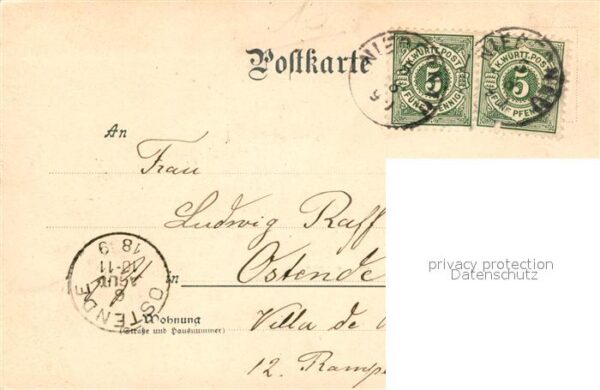 Postkarte
K. WÜRTT. POST
5
FÜNF PFENNIG
K. WÜRTT. POST
5
FÜNF PFENNIG
An
Frau
Ludwig Raff
in Ostende
Villa de
12. Ramp
Wohnung
(Straße und Hausnummer)
OSTENDE
8
AOUT
10-11
18 9
privacy protection
Datenschutz